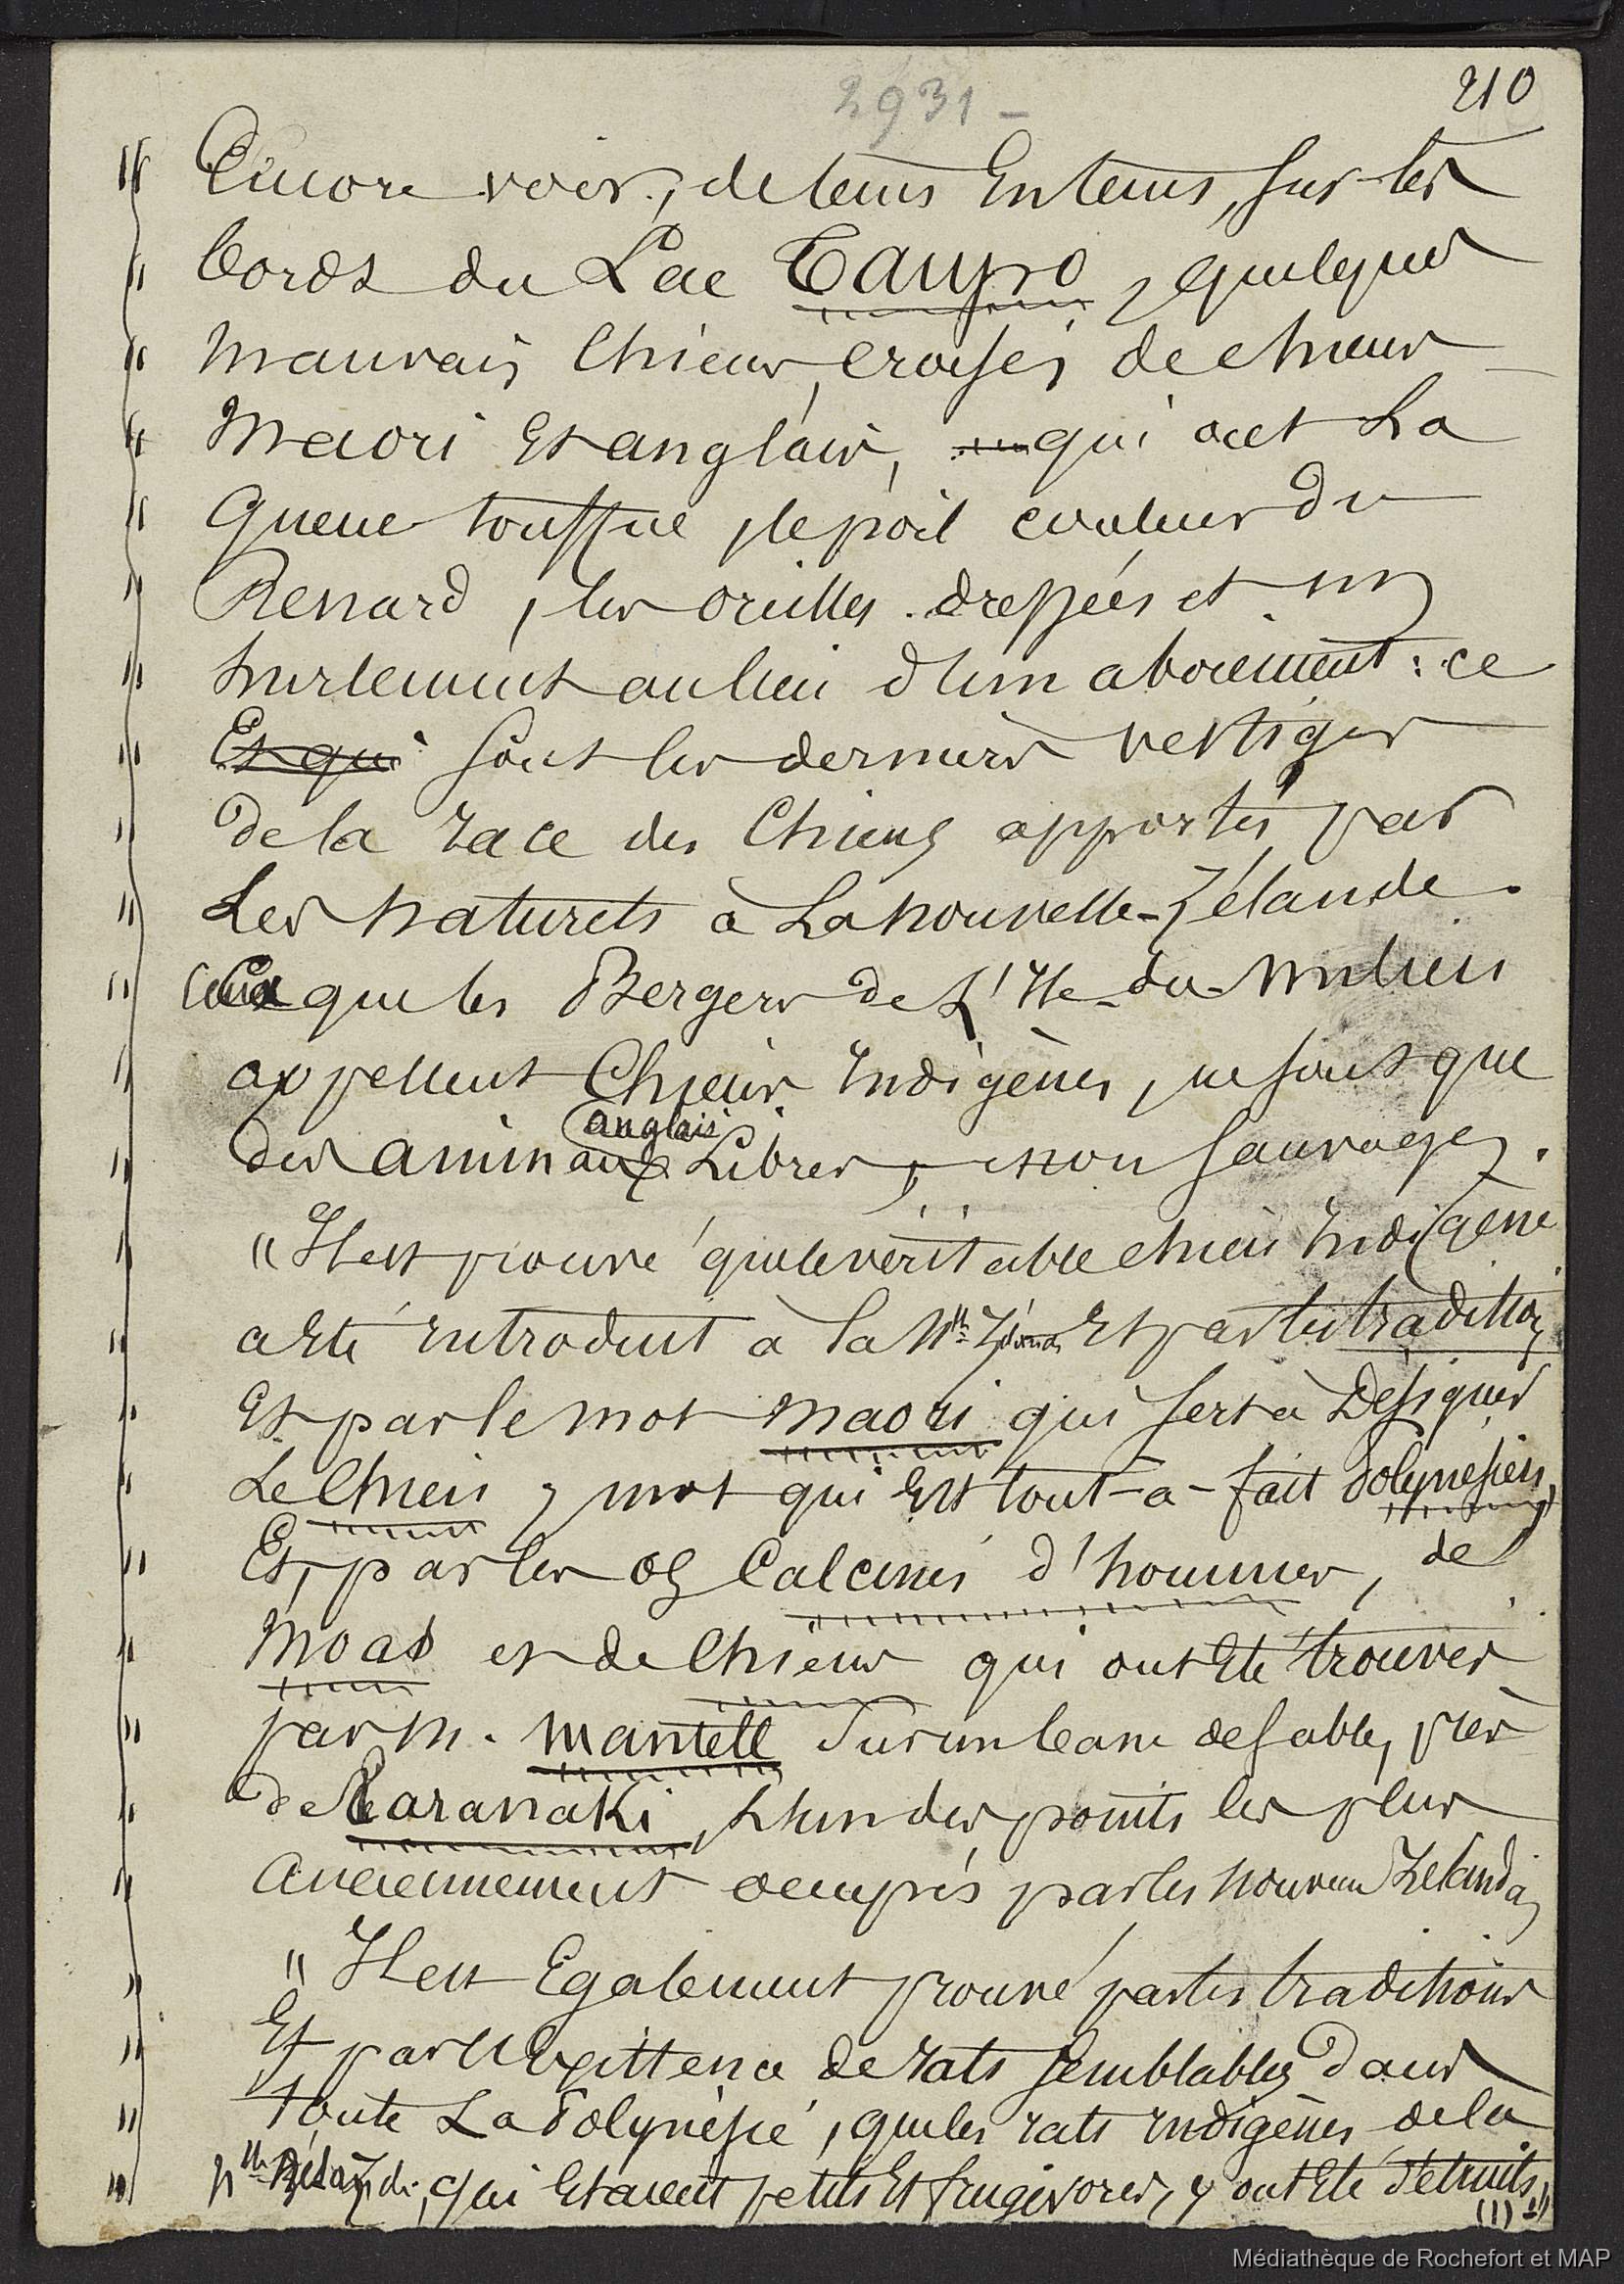 2931 -
210
Encore voir, de tems en tems, sur les
bords du Lac Taupo, quelques
mauvais chiens, croisés de chiens
Maori et anglais, qui ont la
queue touffue, le poil couleur du
Renard, les oreilles dressées et un
hurlement au lieu d'un aboiement : ce
Et qui sont les derniers vestiges
de la race des chiens apportés par
les naturels à la Nouvelle-Zélande.
Ceux que les Bergers de l'Ile-du-milieu
appellent chiens indigènes, ne sont que
anglais
des animaux libres, et non sauvages.
" Il est prouvé que le véritable chien indigène
a été introduit à la Nlle Zélande et par les traditions
et par le mot maori qui sert à désigner
le chien, mot qui est tout-à-fait Polynésien,
Et, par les os calcinés d'hommes, de
moas et de chiens qui ont été trouvés
par M. Mantell sur un banc de sable, près
de Taranaki, l'un des points les plus
anciennement occupés par les nouveaux Zélandais
" Il est également prouvé par les traditions
Et par l'existence de rats semblables dans
toute la Polynésie, que les rats indigènes de la
Nlle Zélande, qui étaient petits et frugivores, y ont été détruits. (1) "
Médiathèque de Rochefort et MAP